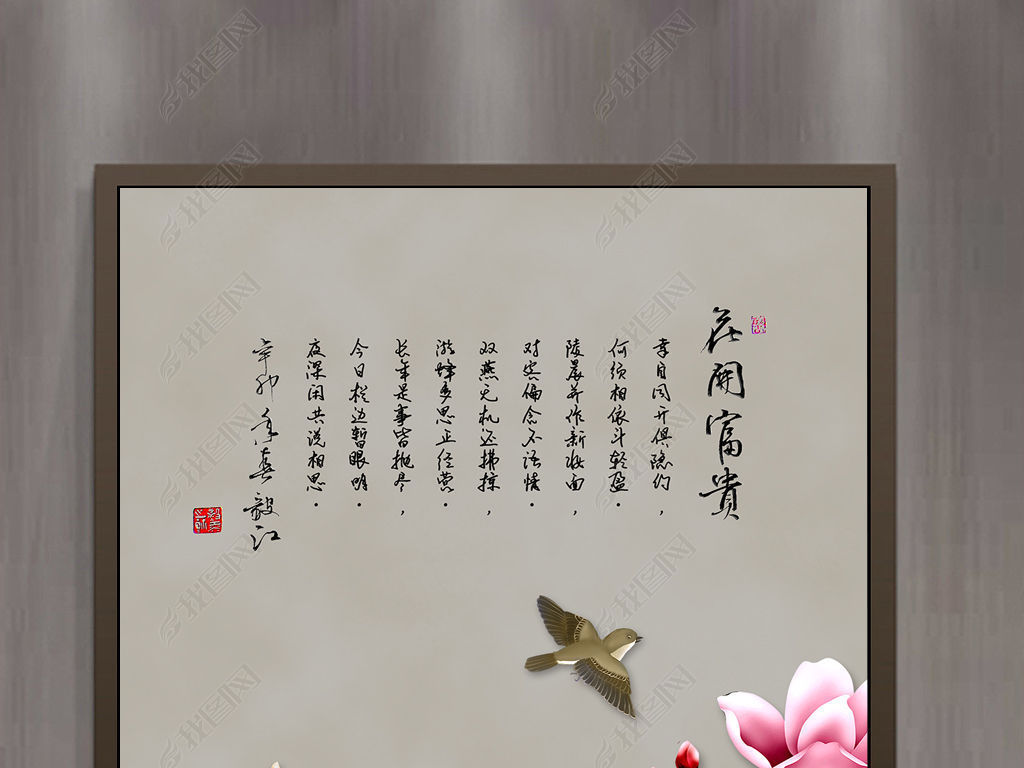 花開富貴
幸自同开俱隐约，
何须相依斗轻盈·
陵晨并作新妆面，
对客偏含不语情·
双燕无机还拂掠，
游蜂多思正经营·
长年是事皆抛尽，
今日栏边暂眼明·
夜深闲共说相思·
辛卯年春毅江
找图网